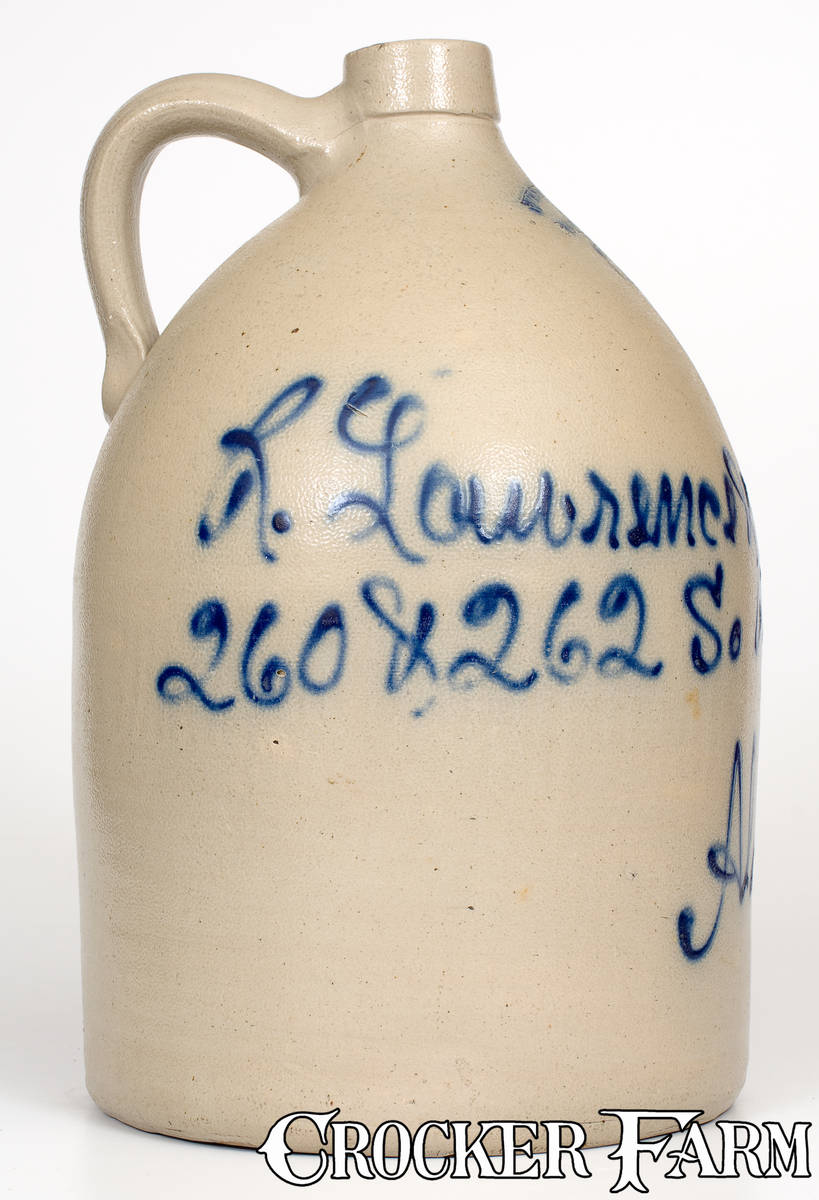 R. Lawrence
260 & 262 So
CROCKER FARM